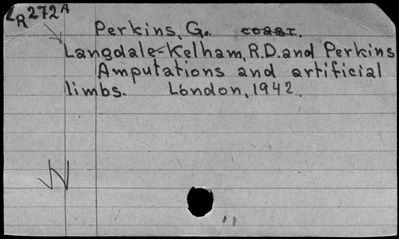 R272A
Perkins, G.
Langdale-Kelham, R.D. and Perkins
Amputations and artificial
limbs. London, 1942.